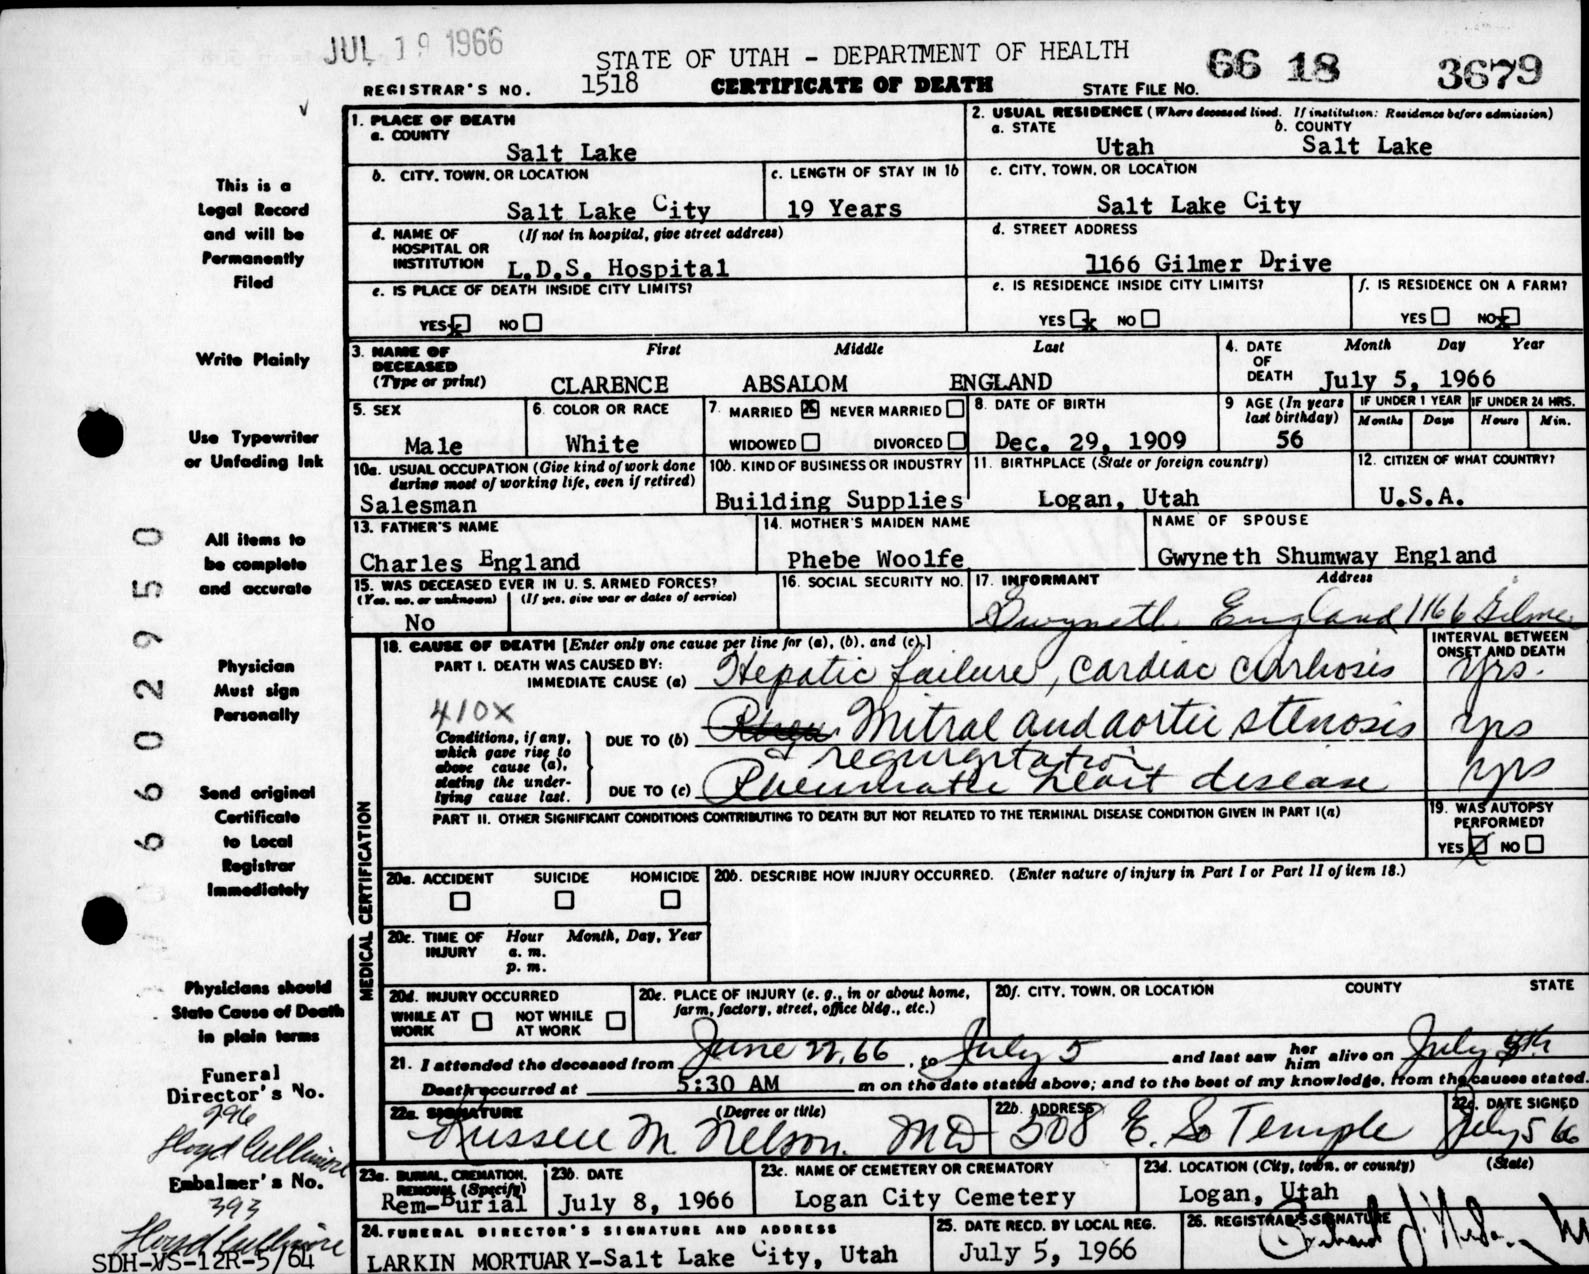 JUL 19 1966
STATE OF UTAH - DEPARTMENT OF HEALTH
66 18 3679
REGISTRAR'S NO. 1518 CERTIFICATE OF DEATH STATE FILE NO.
This is a
Legal Record
and will be
Permanently
Filed
Write Plainly
Use Typewriter
or Unfading Ink
All items to
be complete
and accurate
Physician
Must sign
Personally
Send original
Certificate
to Local
Registrar
Immediately
Physicians should
State Cause of Death
in plain terms
Funeral
Director's No.
296
Embalmer's No.
393
SDH-VS-12R-5/64
6602950
1. PLACE OF DEATH
a. COUNTY
Salt Lake
2. USUAL RESIDENCE (Where deceased lived. If institution: Residence before admission)
a. STATE b. COUNTY
Utah Salt Lake
b. CITY, TOWN, OR LOCATION
Salt Lake City
c. LENGTH OF STAY IN 1b
19 Years
c. CITY, TOWN, OR LOCATION
Salt Lake City
d. NAME OF HOSPITAL OR INSTITUTION (If not in hospital, give street address)
L.D.S. Hospital
d. STREET ADDRESS
1166 Gilmer Drive
e. IS PLACE OF DEATH INSIDE CITY LIMITS?
YES x NO
e. IS RESIDENCE INSIDE CITY LIMITS?
YES x NO
f. IS RESIDENCE ON A FARM?
YES NO x
3. NAME OF DECEASED (Type or print) First Middle Last
CLARENCE ABSALOM ENGLAND
4. DATE OF DEATH Month Day Year
July 5, 1966
5. SEX
Male
6. COLOR OR RACE
White
7. MARRIED x NEVER MARRIED
WIDOWED DIVORCED
8. DATE OF BIRTH
Dec. 29, 1909
9 AGE (In years last birthday)
56
IF UNDER 1 YEAR IF UNDER 24 HRS.
Months Days Hours Min.
10a. USUAL OCCUPATION (Give kind of work done during most of working life, even if retired)
Salesman
10b. KIND OF BUSINESS OR INDUSTRY
Building Supplies
11. BIRTHPLACE (State or foreign country)
Logan, Utah
12. CITIZEN OF WHAT COUNTRY?
U.S.A.
13. FATHER'S NAME
Charles England
14. MOTHER'S MAIDEN NAME
Phebe Woolfe
NAME OF SPOUSE
Gwyneth Shumway England
15. WAS DECEASED EVER IN U. S. ARMED FORCES?
(Yes, no, or unknown) (If yes, give war or dates of service)
No
16. SOCIAL SECURITY NO.
17. INFORMANT Address
Gwyneth England 1166 Gilmer
MEDICAL CERTIFICATION
18. CAUSE OF DEATH [Enter only one cause per line for (a), (b), and (c).]
INTERVAL BETWEEN ONSET AND DEATH
PART I. DEATH WAS CAUSED BY:
IMMEDIATE CAUSE (a) Hepatic failure, cardiac cirrhosis yrs.
410X
Conditions, if any, which gave rise to above cause (a), stating the underlying cause last.
DUE TO (b) Mitral and aortic stenosis yrs
& regurgitation
DUE TO (c) Rheumatic heart disease yrs
PART II. OTHER SIGNIFICANT CONDITIONS CONTRIBUTING TO DEATH BUT NOT RELATED TO THE TERMINAL DISEASE CONDITION GIVEN IN PART I(a)
19. WAS AUTOPSY PERFORMED?
YES x NO
20a. ACCIDENT SUICIDE HOMICIDE
20b. DESCRIBE HOW INJURY OCCURRED. (Enter nature of injury in Part I or Part II of item 18.)
20c. TIME OF INJURY Hour Month, Day, Year
a. m.
p. m.
20d. INJURY OCCURRED
WHILE AT WORK NOT WHILE AT WORK
20e. PLACE OF INJURY (e. g., in or about home, farm, factory, street, office bldg., etc.)
20f. CITY, TOWN, OR LOCATION COUNTY STATE
21. I attended the deceased from June 22, 66, to July 5 and last saw her him alive on July 5th
Death occurred at 5:30 AM m on the date stated above; and to the best of my knowledge, from the causes stated.
22a. SIGNATURE (Degree or title)
Russell M. Nelson. MD
22b. ADDRESS
508 E. So Temple
22c. DATE SIGNED
July 5 66
23a. BURIAL, CREMATION, REMOVAL (Specify)
Rem-Burial
23b. DATE
July 8, 1966
23c. NAME OF CEMETERY OR CREMATORY
Logan City Cemetery
23d. LOCATION (City, town, or county) (State)
Logan, Utah
24. FUNERAL DIRECTOR'S SIGNATURE AND ADDRESS
LARKIN MORTUARY-Salt Lake City, Utah
25. DATE RECD. BY LOCAL REG.
July 5, 1966
26. REGISTRAR'S SIGNATURE